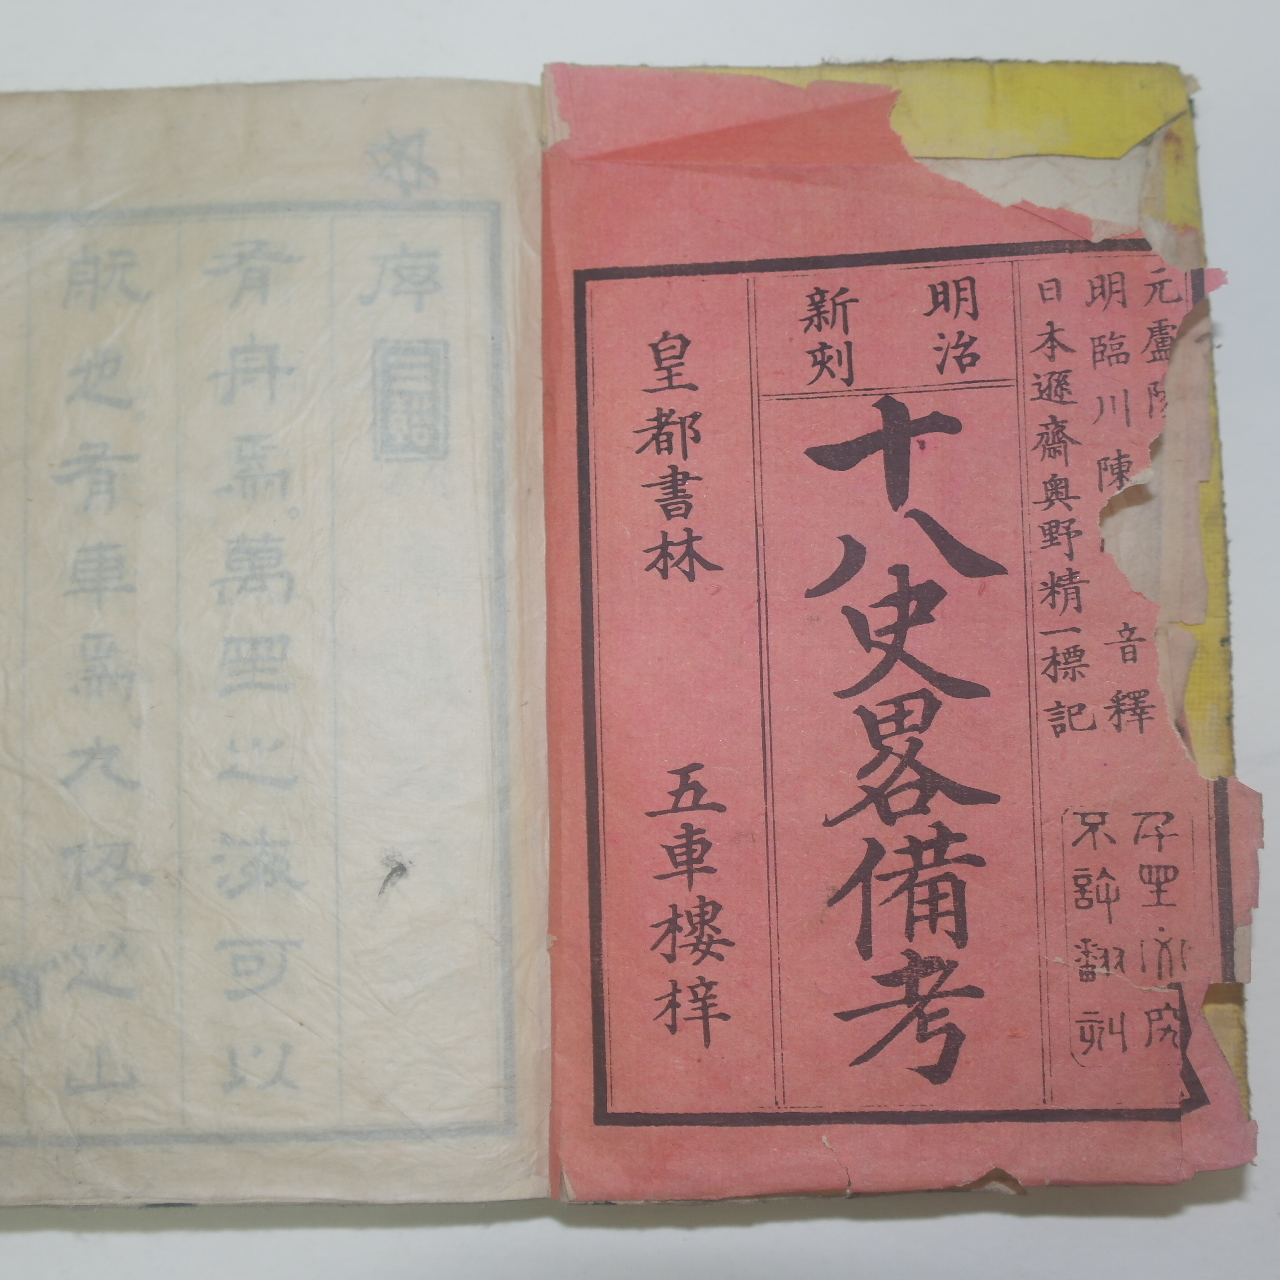 元盧
明臨川陳 音釋
日本遜齋奥野精一標記
千里必究
不許翻刻
明治
新刻
十八史畧備考
皇都書林 五車樓梓
序
有舟焉。萬里之海可以
航也有車焉九之山